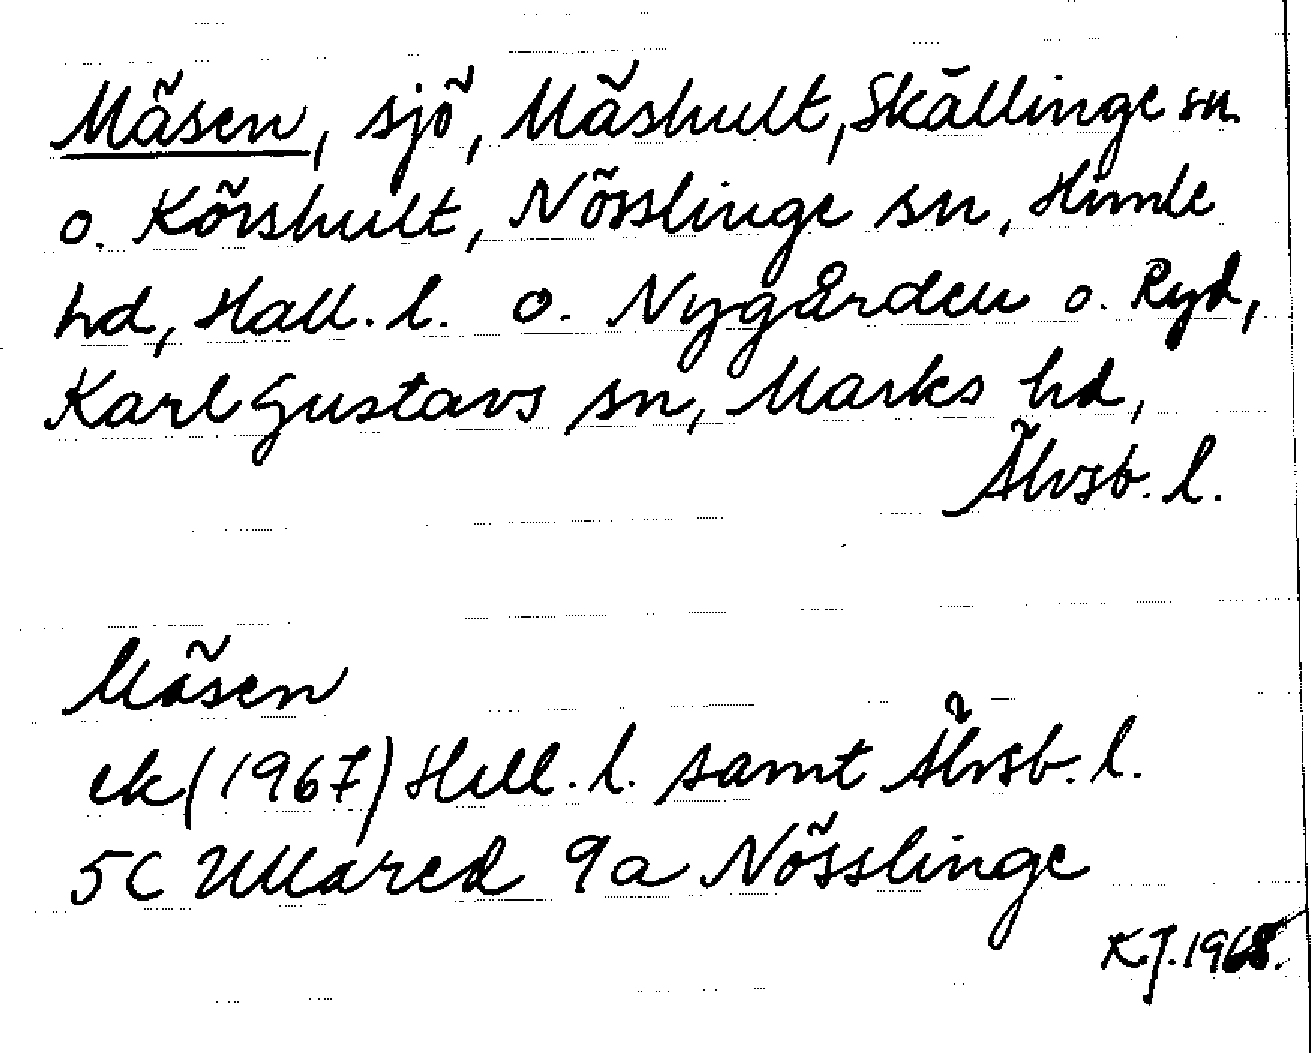 Mäsen, sjö, Mäshult, Skällinge sn
o. Körshult, Nösslinge sn, Himle
hd, Hall. l. o. Nygården o. Ryd,
Karl Gustavs sn, Marks hd,
Älvsb. l.
Mäsen
ek (1967) Hall. l. samt Älvsb. l.
5C Ullared 9a Nösslinge
K.J. 1968.